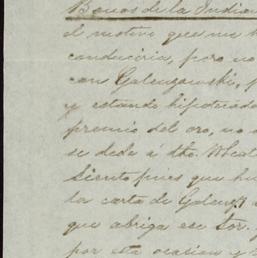 Bonos de la Indian
el motivo que
conduciria, pero no
con Galenzowski, 
y estando hipotecado
premio del oro, no
se dede á dho. Wheat
siento pues que hu
la carta de Galenz
que abriga ese Sor.
por esta ocasion y